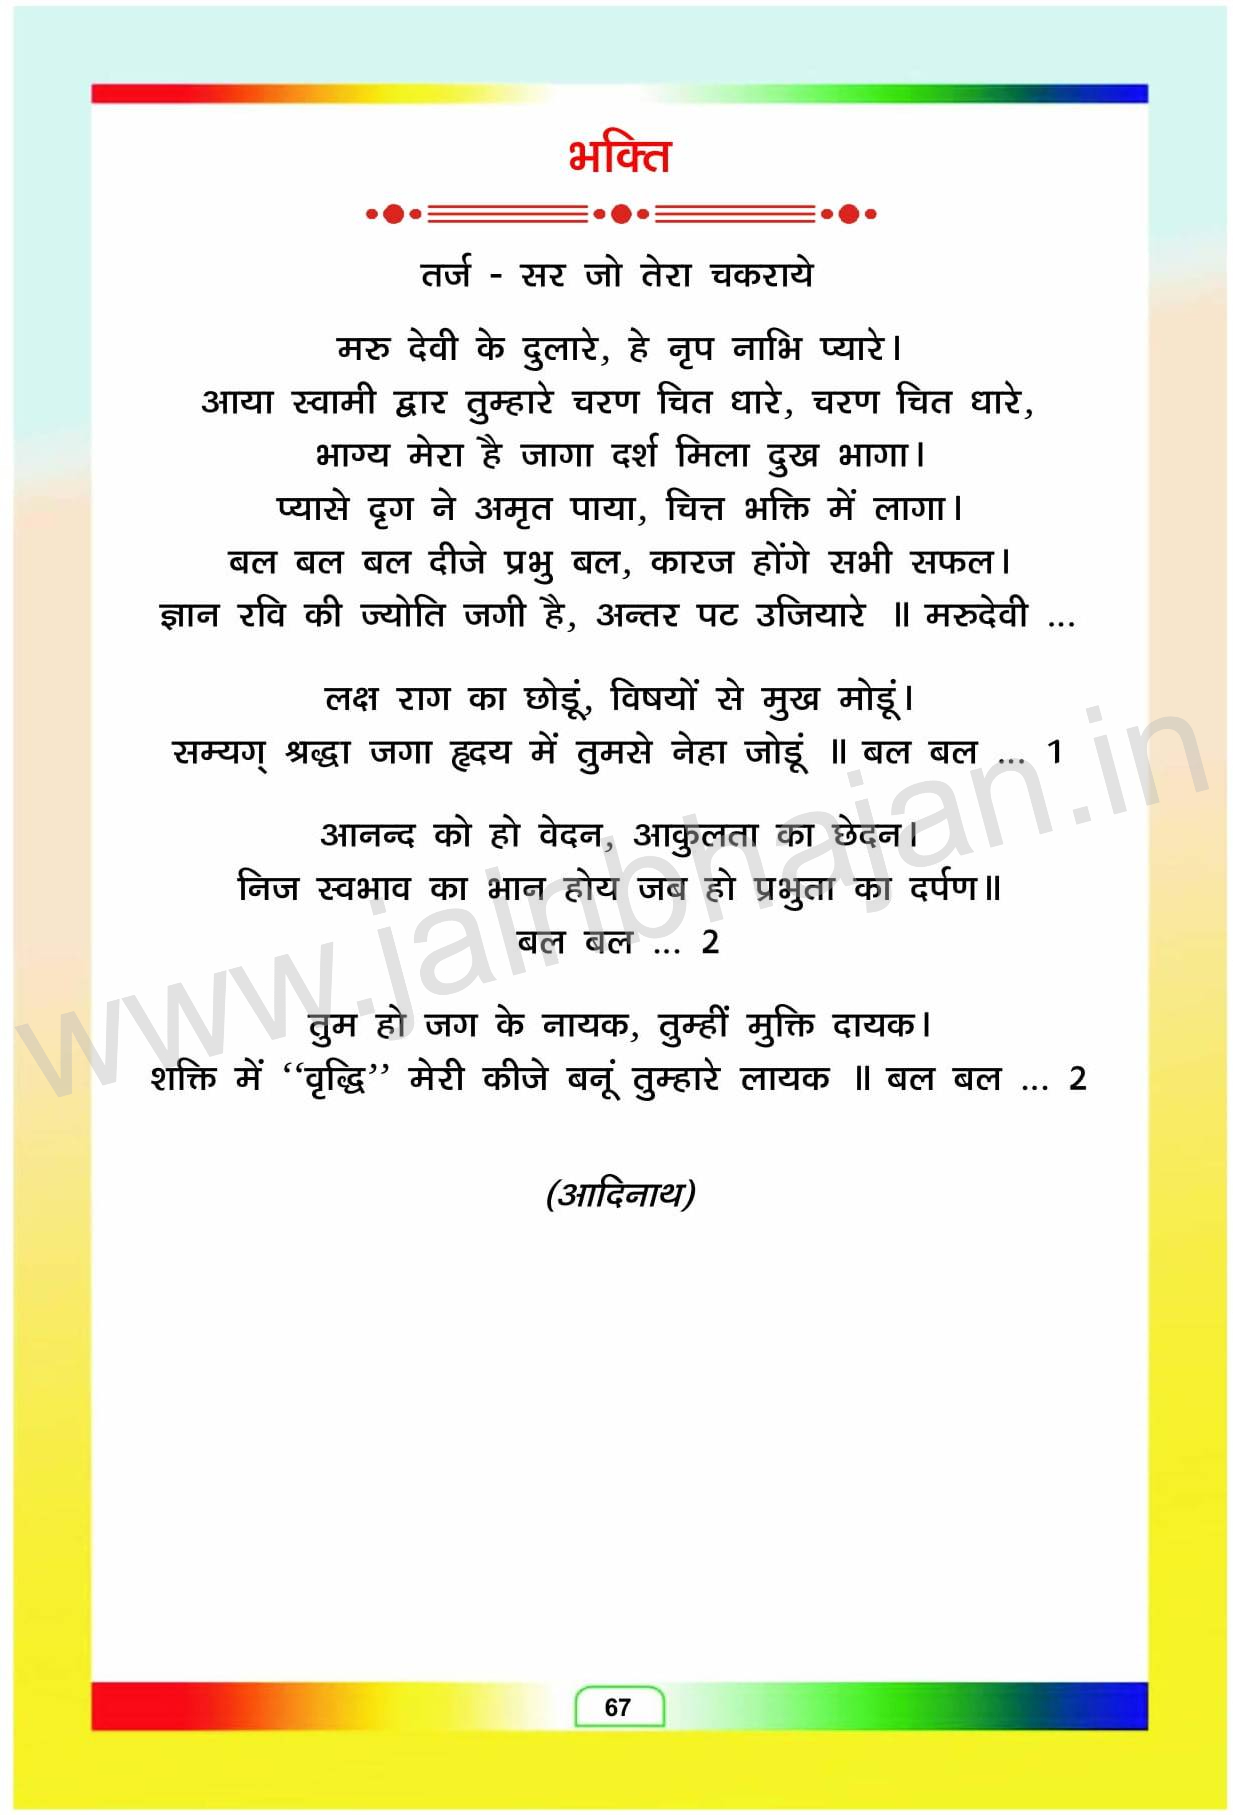 भक्ति
तर्ज - सर जो तेरा चकराये
मरु देवी के दुलारे, हे नृप नाभि प्यारे।
आया स्वामी द्वार तुम्हारे चरण चित धारे, चरण चित धारे,
भाग्य मेरा है जागा दर्श मिला दुख भागा।
प्यासे दृग ने अमृत पाया, चित्त भक्ति में लागा।
बल बल बल दीजे प्रभु बल, कारज होंगे सभी सफल।
ज्ञान रवि की ज्योति जगी है, अन्तर पट उजियारे ॥ मरुदेवी ...
लक्ष राग का छोडूं, विषयों से मुख मोडूं।
सम्यग् श्रद्धा जगा हृदय में तुमसे नेहा जोडूं ॥ बल बल ... 1
आनन्द को हो वेदन, आकुलता का छेदन।
निज स्वभाव का भान होय जब हो प्रभुता का दर्पण॥
बल बल ... 2
तुम हो जग के नायक, तुम्हीं मुक्ति दायक।
शक्ति में ‘‘वृद्धि’’ मेरी कीजे बनूं तुम्हारे लायक ॥ बल बल ... 2
(आदिनाथ)
67
www.jainbhajan.in